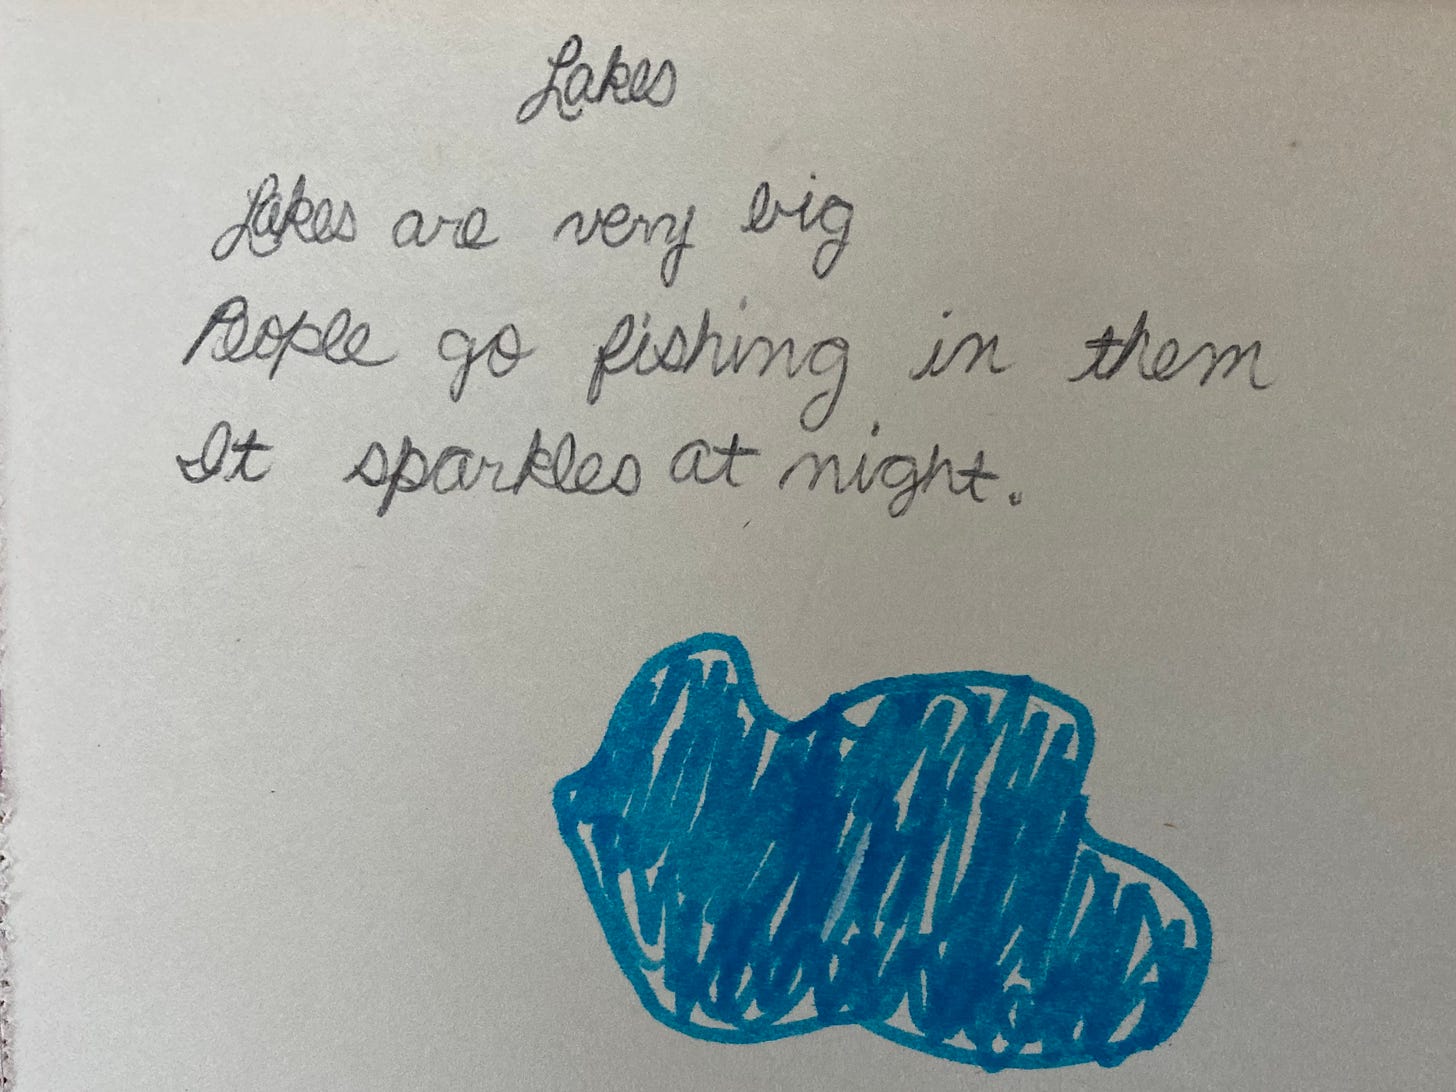 Lakes
Lakes are very big
People go fishing in them
It sparkles at night.